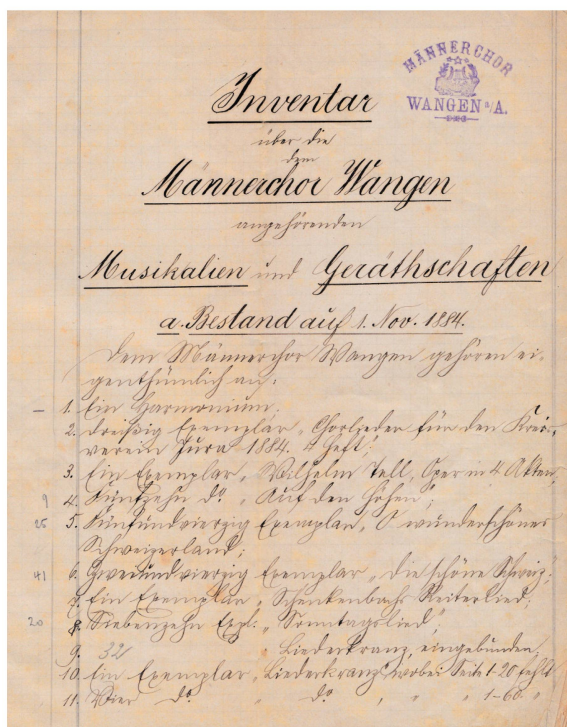 MÄNNERCHOR
WANGEN a/A.
Inventar
über die
dem
Männerchor Wangen
angehörenden
Musikalien und Geräthschaften
a. Bestand auf 1. Nov. 1884.
Dem Männerchor Wangen gehören ei-
genthümlich an:
– 1. Ein Harmonium.
2. Dreißig Exemplar „Chorlieder für den Kreis-
verein Jura 1884. 4 Heft;
3. Ein Exemplar „Wilhelm Tell, Oper in 4 Akten;
9 4. Fünfzehn do. „Auf den Höhen";
25 5. Fünfundvierzig Exemplar „O wunderschönes
Schweizerland;
41 6. Zweiundvierzig Exemplar „Die schöne Schweiz;
7. Ein Exemplar „Schenkenbachs Reiterlied;
20 8. Siebenzehn Expl. „Sonntagslied";
9. 32 " Liederkranz, eingebunden;
10. Ein Exemplar „Liederkranz" wobei Seite 1-20 fehlt
11. Vier do. " do. " " " 1-60. "